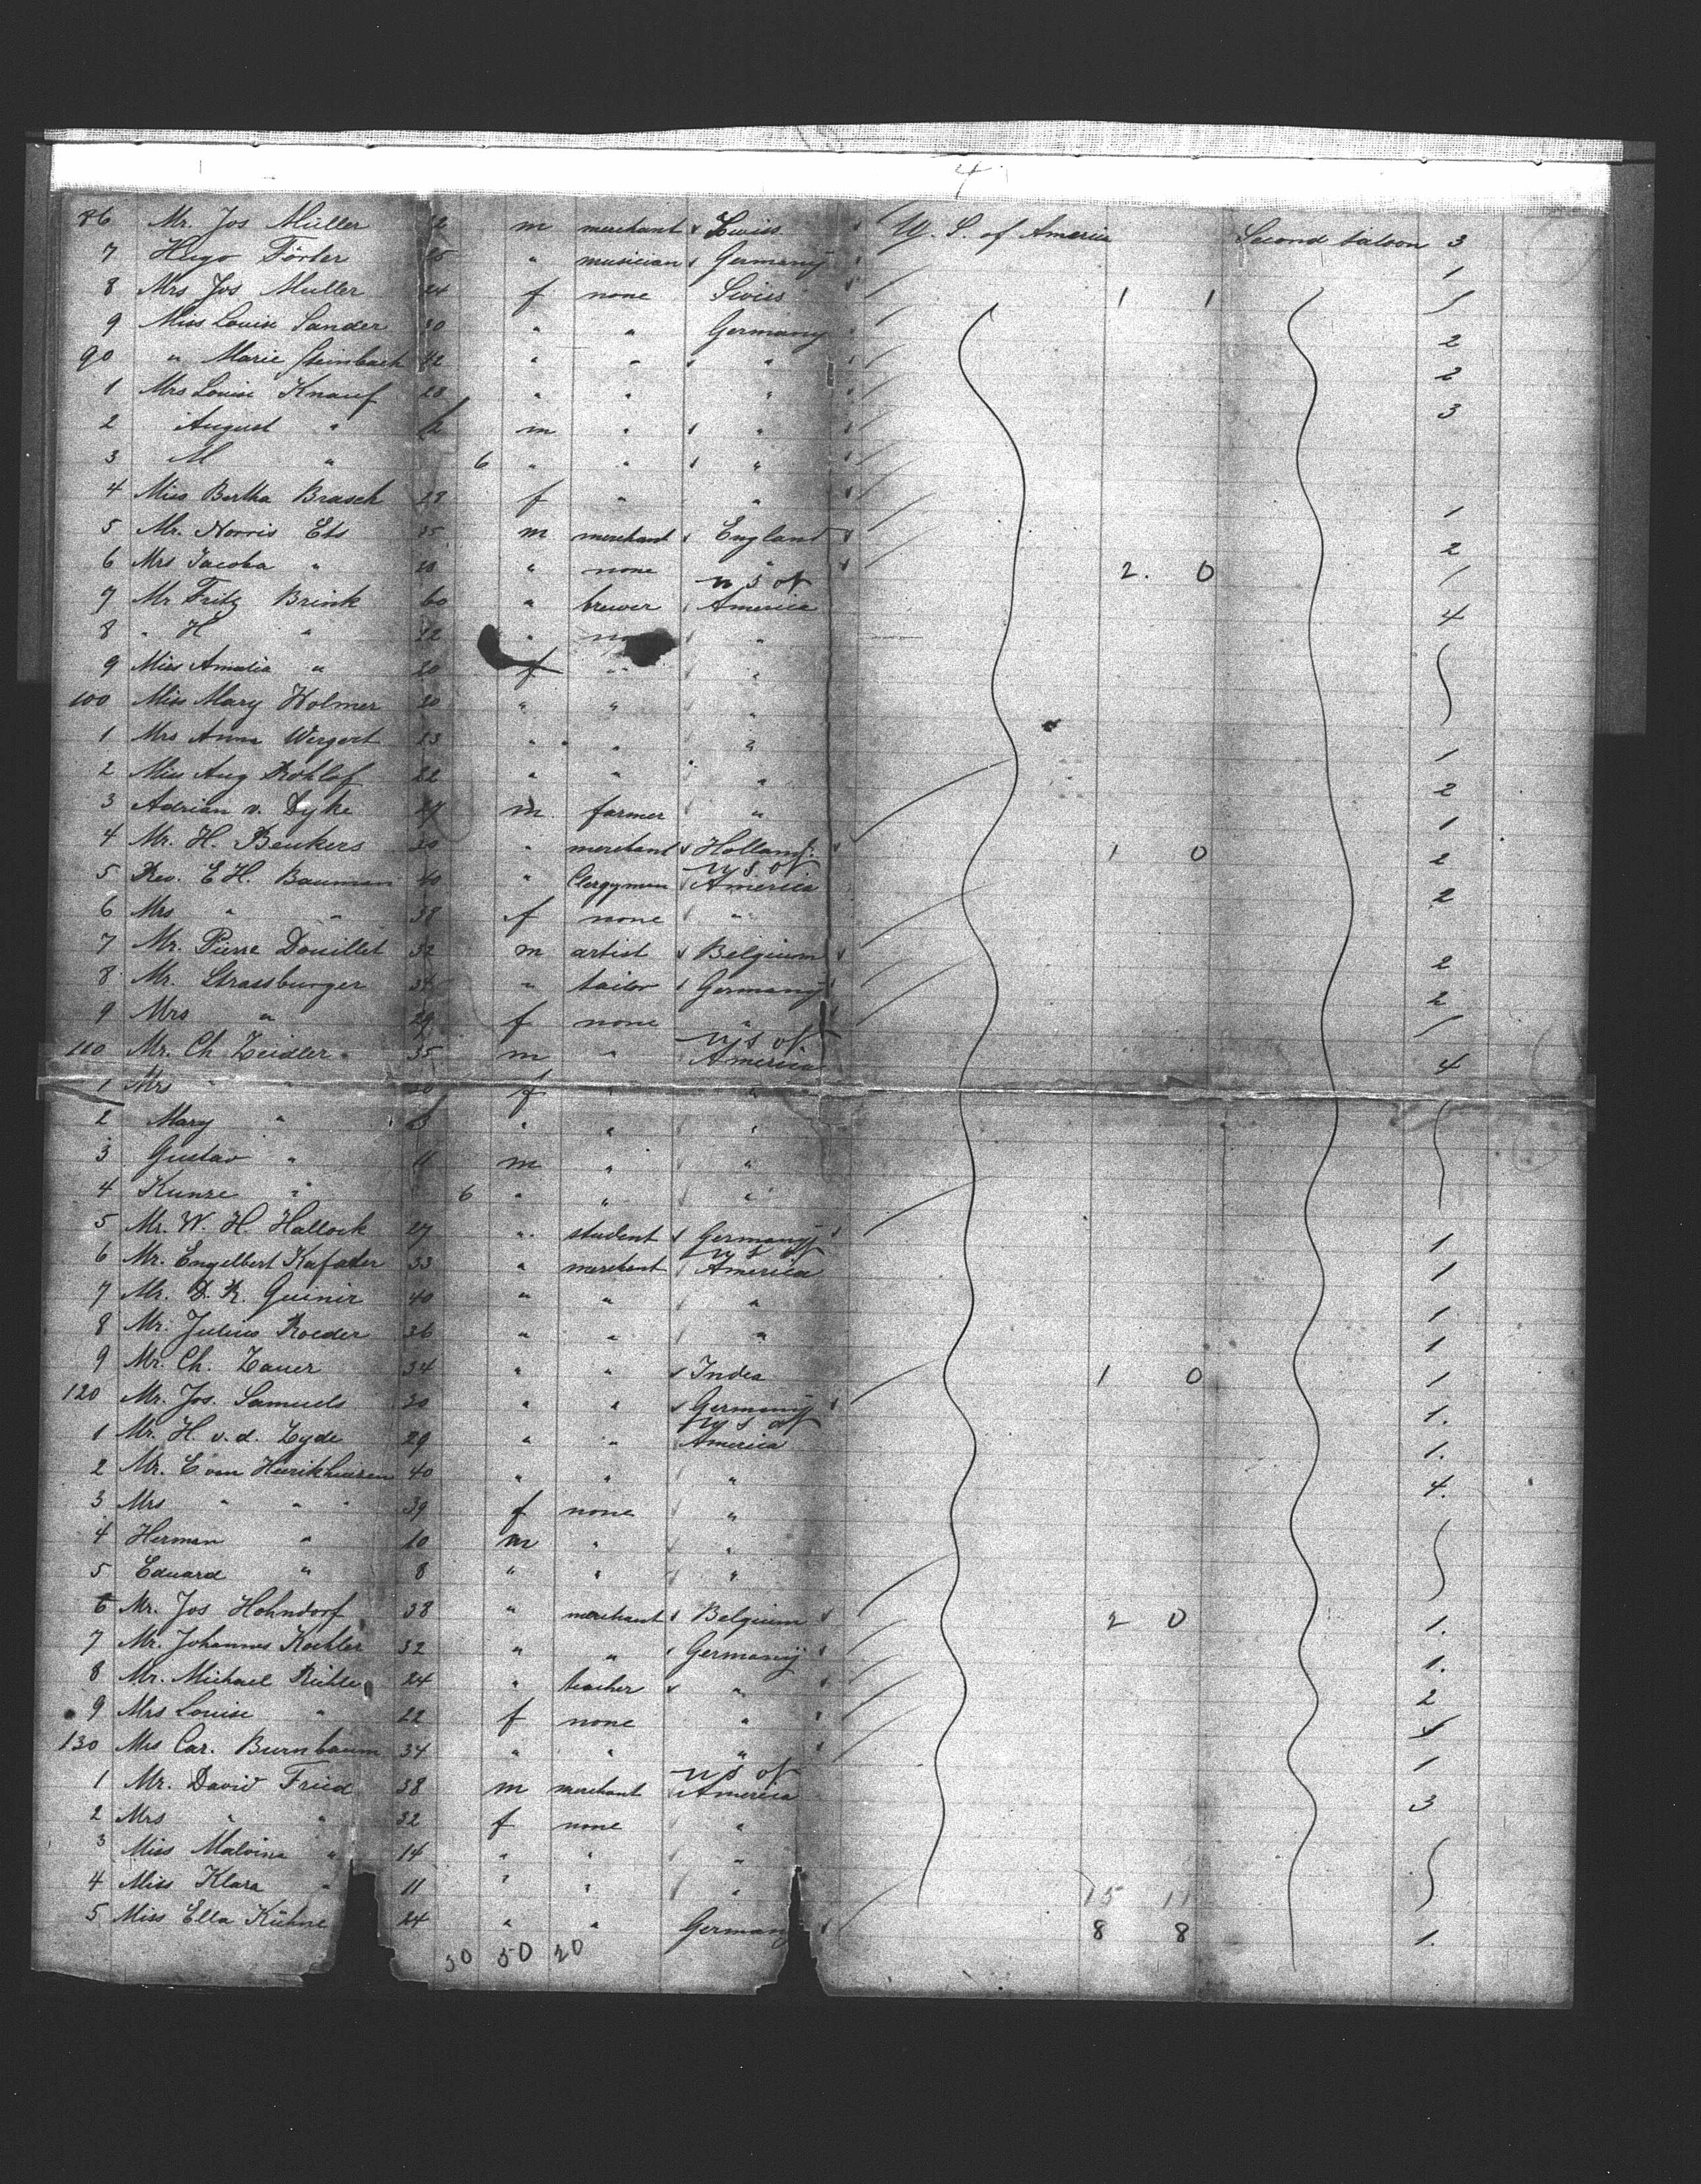 4
86 Mr. Jos Müller m merchant Swiss U. S. of America Second Saloon 3
7 Hugo Förter " musician Germany 1
8 Mrs Jos Muller 24 f none Swiss 1 1
9 Miss Louise Sander 30 " " Germany 2
90 " Marie Steinbach 42 " " " 2
1 Mrs Louise Knauf 28 " " " 3
2 August " m " "
3 M " 6 " " "
4 Miss Bertha Brasch 28 f " " 1
5 Mr. Norris Ets 35 m merchant England 2
6 Mrs Jacoba " 20 " none " 2. 0
7 Mr Fritz Brink 60 " brewer U S of America 4
8 " H " 22 " "
9 Miss Amalia " 20 f " "
100 Miss Mary Holmer 20 " " "
1 Mrs Anna Wergert 23 " " " 1
2 Miss Aug Rohlof 22 " " " 2
3 Adrian v. Dyke m farmer " 1
4 Mr. H. Beukers 30 " merchant Holland 1 0 2
5 Rev. E H. Bauman 40 " Clergyman U S of America 2
6 Mrs " " 38 f none "
7 Mr. Pierre Douillet 32 m artist Belgium 2
8 Mr. Strassburger 34 " tailor Germany 2
9 Mrs " 29 f none "
110 Mr. Ch Zeidler 35 m " U S of America 4
1 Mrs " " 30 f " "
2 Mary " " " "
3 Gustav " 11 m " "
4 Kunze " 6 " " "
5 Mr. W. H. Hallock 27 " student Germany 1
6 Mr. Engelbert Kafader 33 " merchant U S of America 1
7 Mr. D. R. Guinir 40 " " " 1
8 Mr. Julius Roeder 36 " " " 1
9 Mr. Ch. Zauer 34 " " India 1 0 1
120 Mr. Jos. Samuels 30 " " Germany 1.
1 Mr. H. v. d. Zyde 29 " " U S of America 1.
2 Mr. E van 40 " " " 4.
3 Mrs " " " 39 f none "
4 Herman " 10 m " "
5 Eduard " 8 " " "
6 Mr. Jos Hohndorf 38 " merchant Belgium 2 0 1.
7 Mr. Johannes Koehler 32 " " Germany 1.
8 Mr. Michael Rühle 24 " teacher " 2
9 Mrs Louise " 22 f none "
130 Mrs Car. Burnbaum 34 " " " 1
1 Mr. David Fried 38 m merchant U S of America 3
2 Mrs " " 32 f none "
3 Miss Malvina " 14 " " "
4 Miss Klara " 11 " " " 15 11
5 Miss Ella Kühne 24 " " Germany 8 8 1.
30 50 20